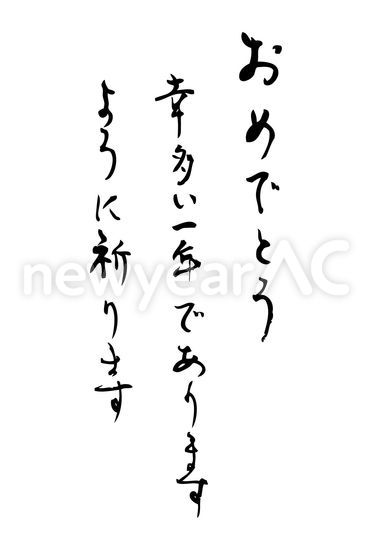 おめでとう
幸多い一年であります
ように祈ります
newyearAC